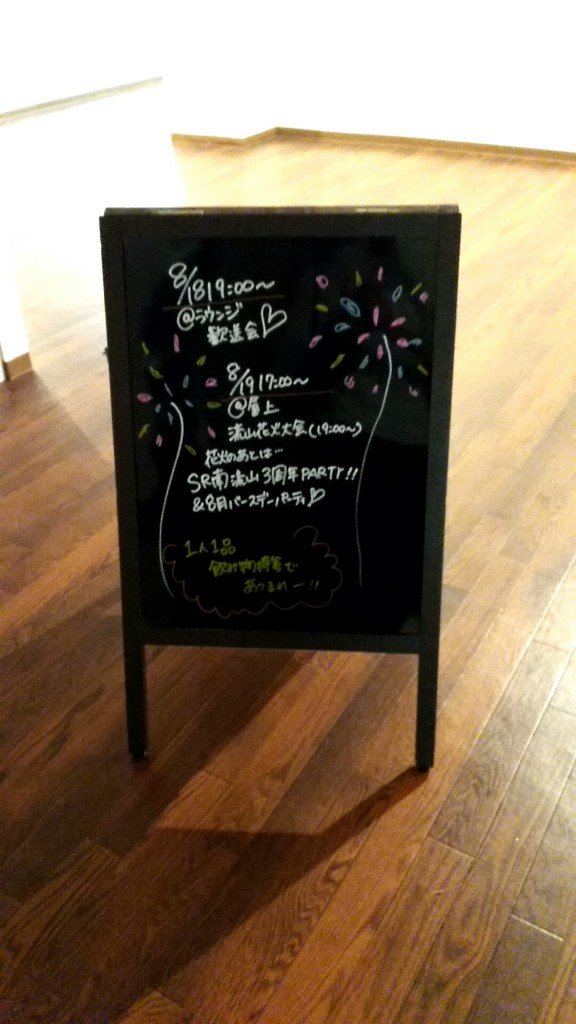 8/18 19:00〜
@ラウンジ
歓送会♡
8/19 17:00〜
@屋上
流山花火大会(19:00〜)
花火のあとは…
SR南流山3周年PARTY!!
&8月バースデーパーティ♡
1人1品
飲み物持参で
あつまれー!!